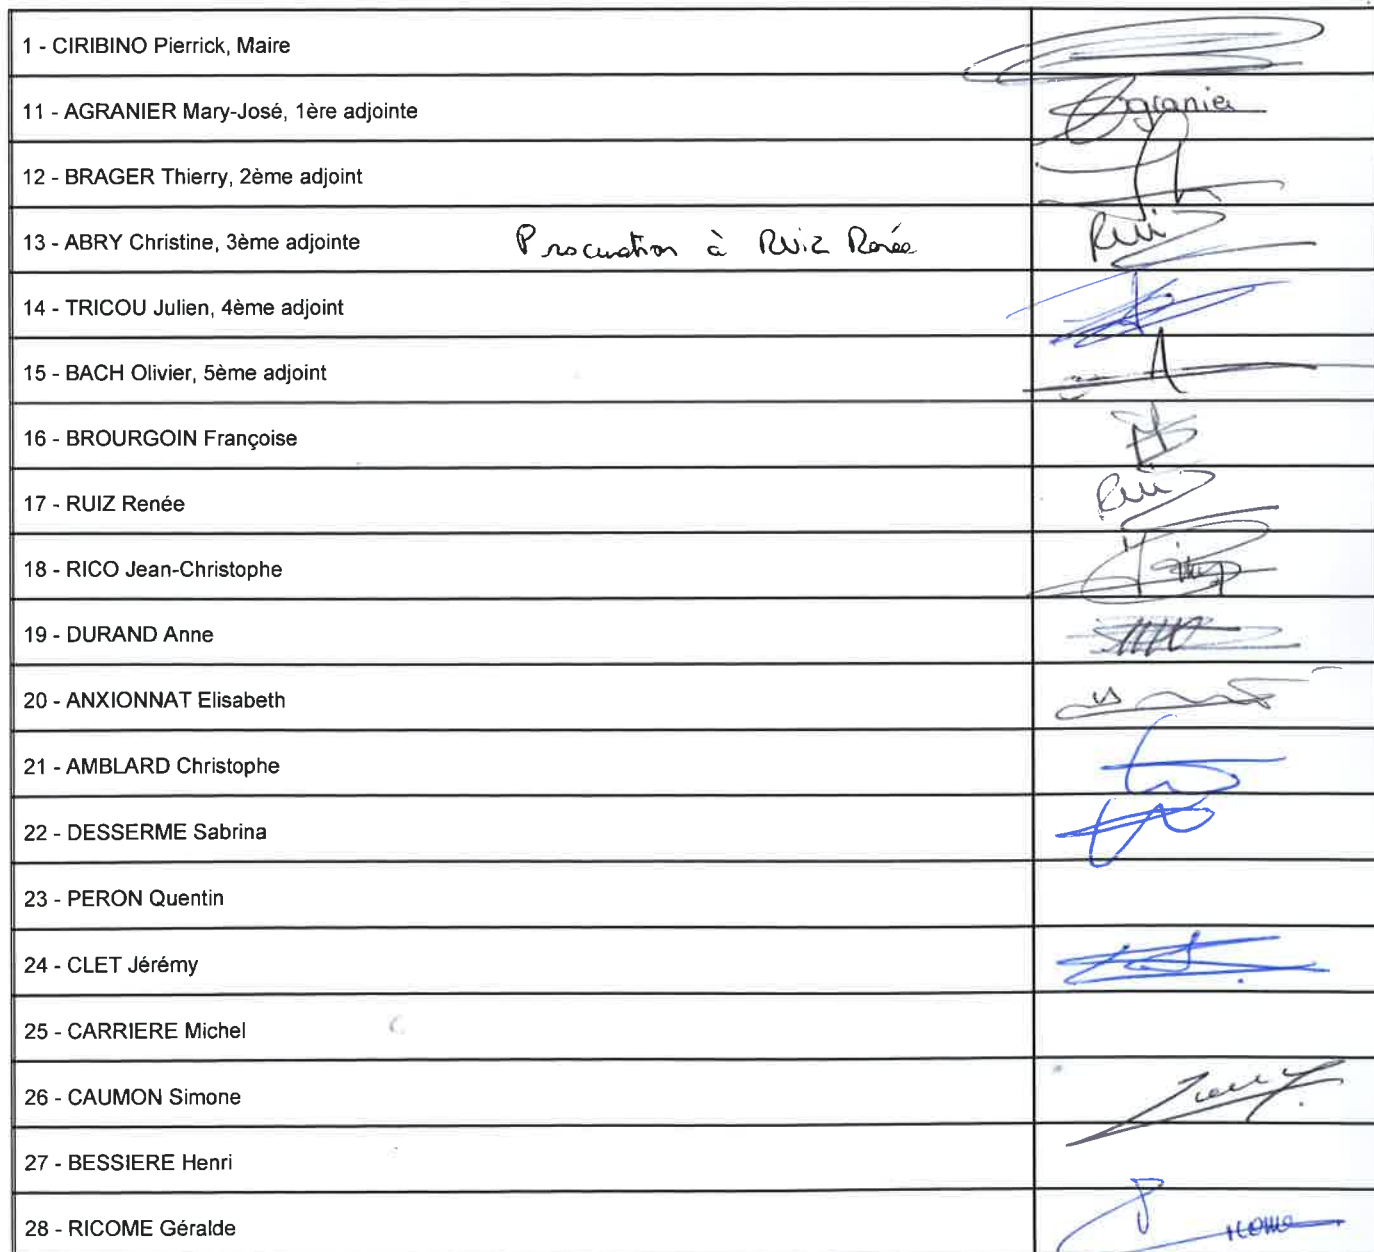 1 - CIRIBINO Pierrick, Maire
11 - AGRANIER Mary-José, 1ère adjointe Agranier
12 - BRAGER Thierry, 2ème adjoint
13 - ABRY Christine, 3ème adjointe Procuration à RUIZ Renée Ruiz
14 - TRICOU Julien, 4ème adjoint
15 - BACH Olivier, 5ème adjoint
16 - BROURGOIN Françoise
17 - RUIZ Renée Ruiz
18 - RICO Jean-Christophe
19 - DURAND Anne
20 - ANXIONNAT Elisabeth
21 - AMBLARD Christophe
22 - DESSERME Sabrina
23 - PERON Quentin
24 - CLET Jérémy
25 - CARRIERE Michel
26 - CAUMON Simone
27 - BESSIERE Henri
28 - RICOME Géralde